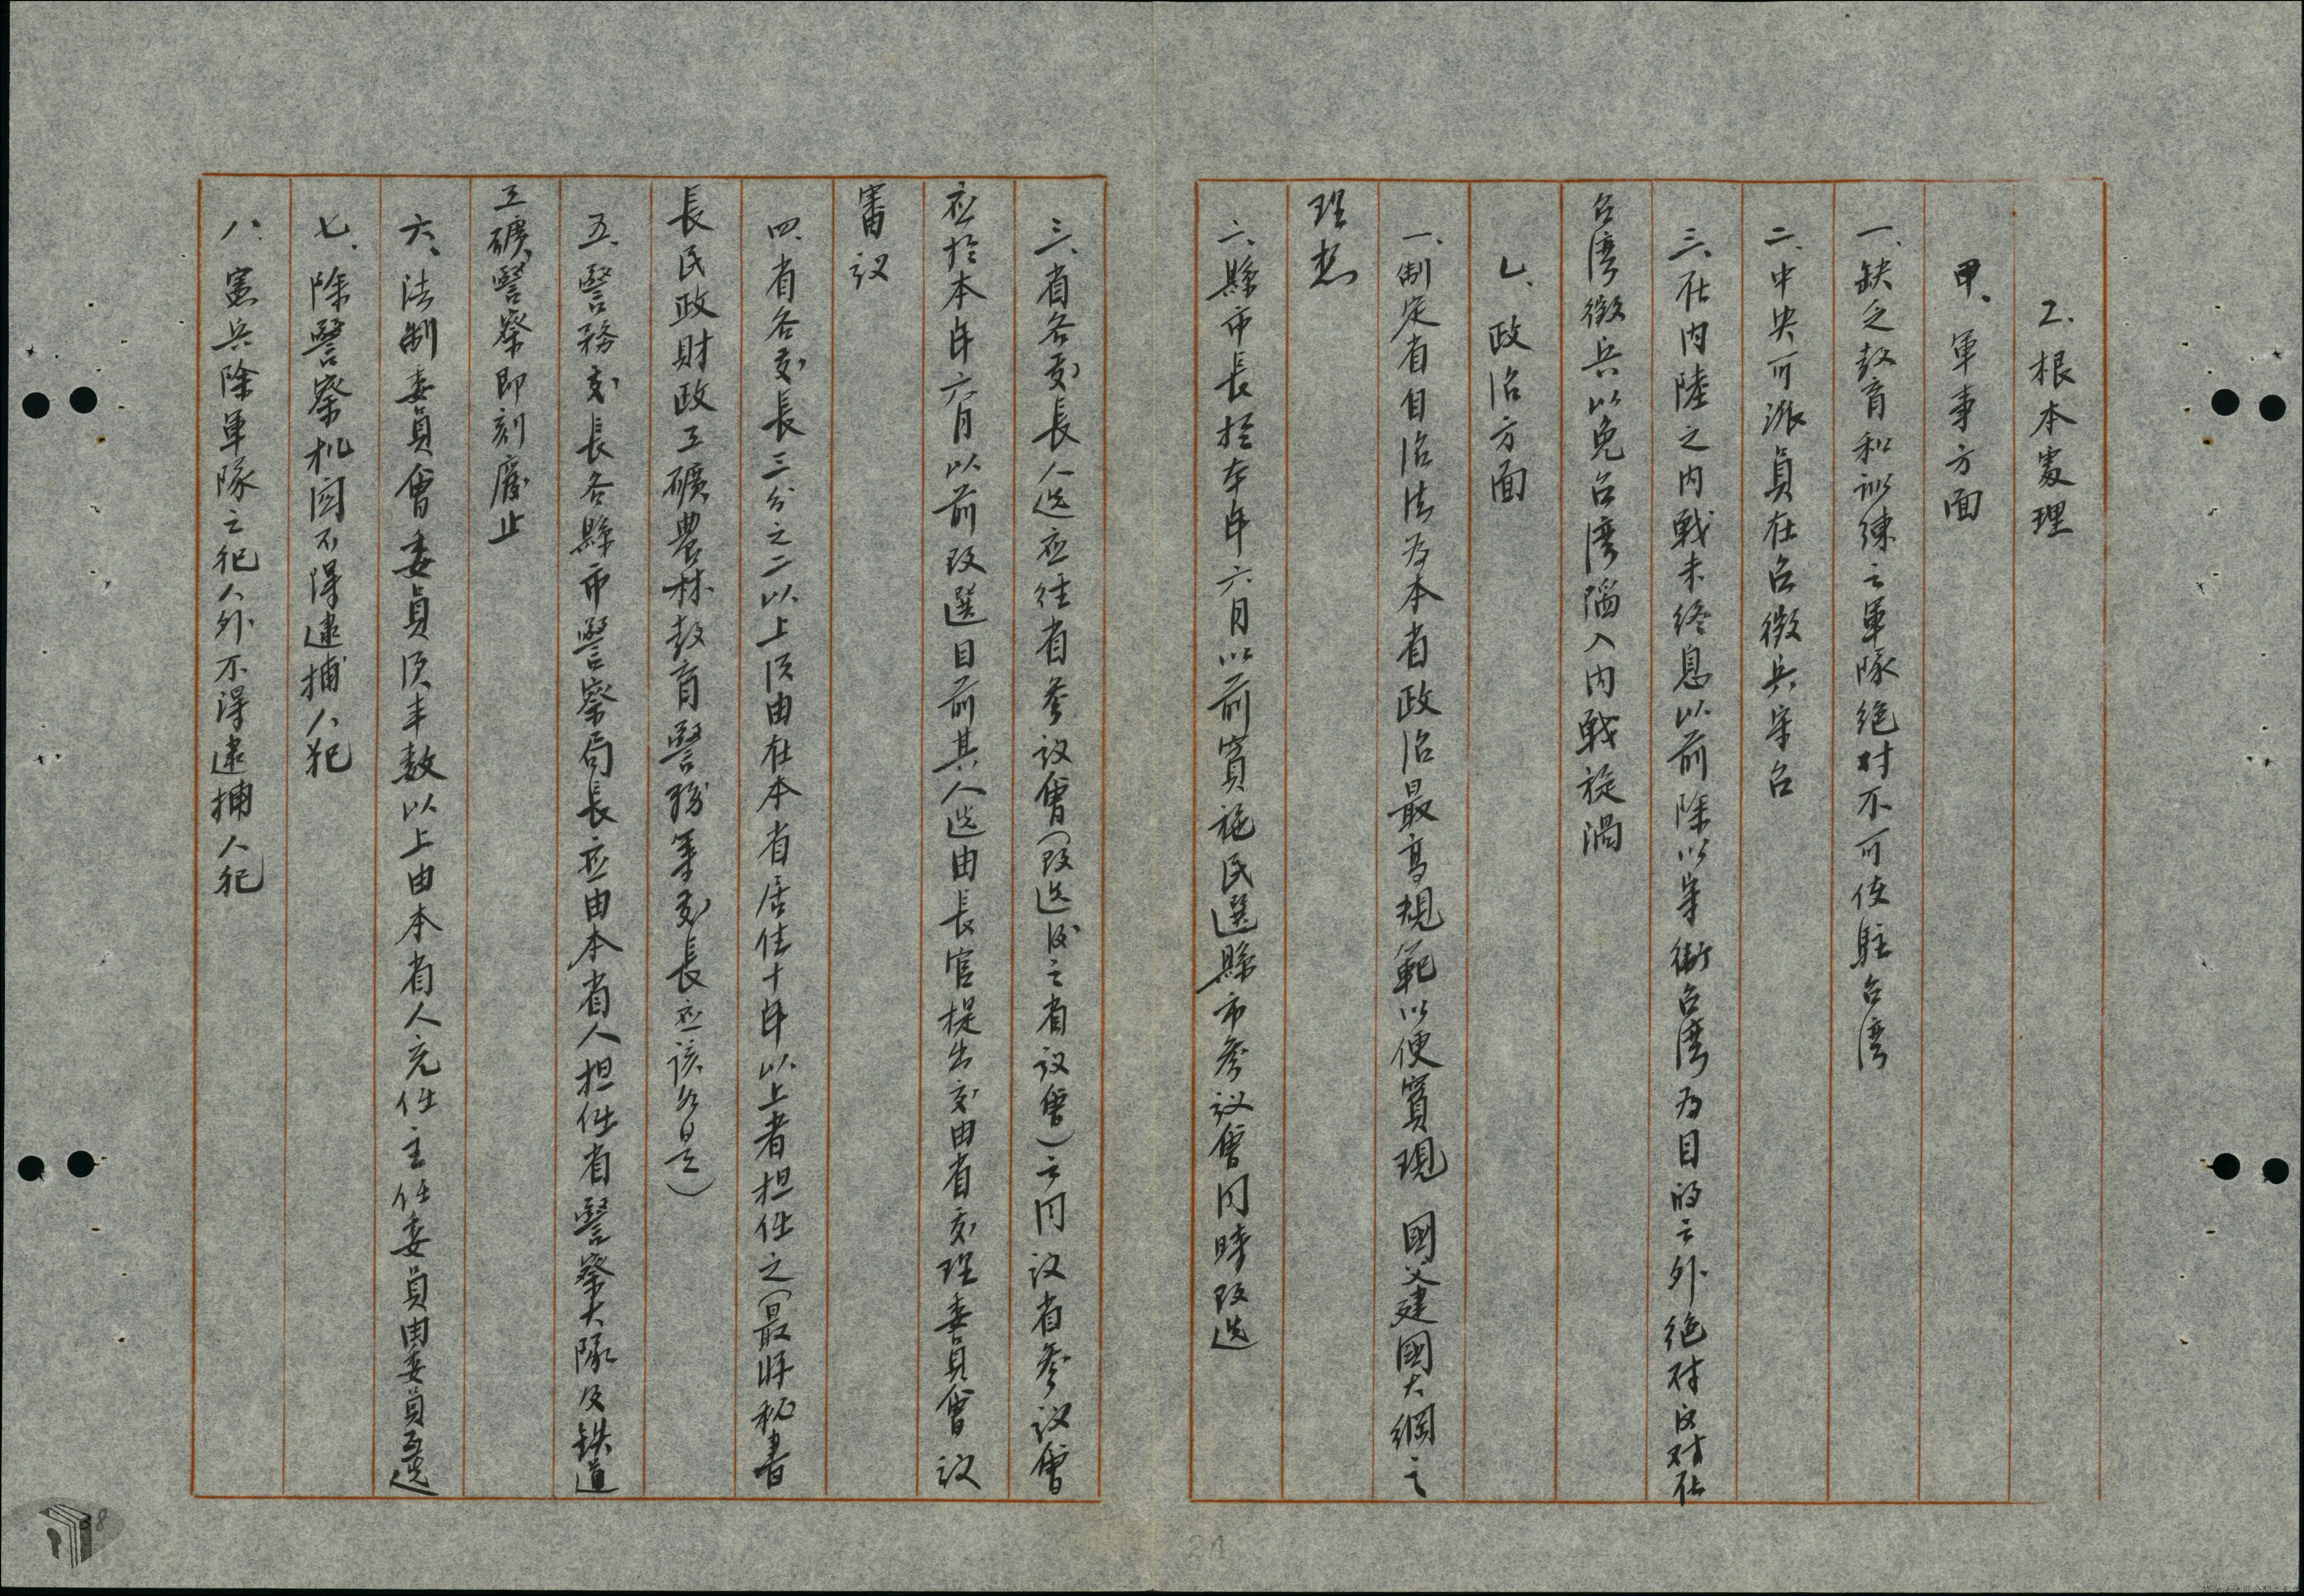 2. 根本處理
甲、軍事方面
一、缺乏教育和訓練之軍隊绝对不可使駐台湾
二、中央可派員在台徴兵守台
三、在内陸之内戰未終息以前除以守衛台湾为目的之外绝对反对在
台湾徴兵以免台湾陷入内戰旋渦
乚、政治方面
一、制定省自治法为本省政治最高規範以便實現 國父建國大綱之
理想
二、縣市長於本年六月以前實施民選縣市參议會同時改选
三、省各处長人选应経省參议會(改选後之省议會)之同议省參议會
应於本年六月以前改選目前其人选由長官提出交由省处理委員會议
審议
四、省各处長三分之二以上须由在本省居住十年以上者担任之(最好秘書
長民政財政工礦農林教育警務等处長应該如是)
五、警務处長各縣市警察局長应由本省人担任省警察大隊及铁道
工礦警察即刻廢止
六、法制委員會委員须半數以上由本省人充任主任委員由委員互選
七、除警察机関不得逮捕人犯
八、憲兵除軍隊之犯人外不得逮捕人犯
24
38